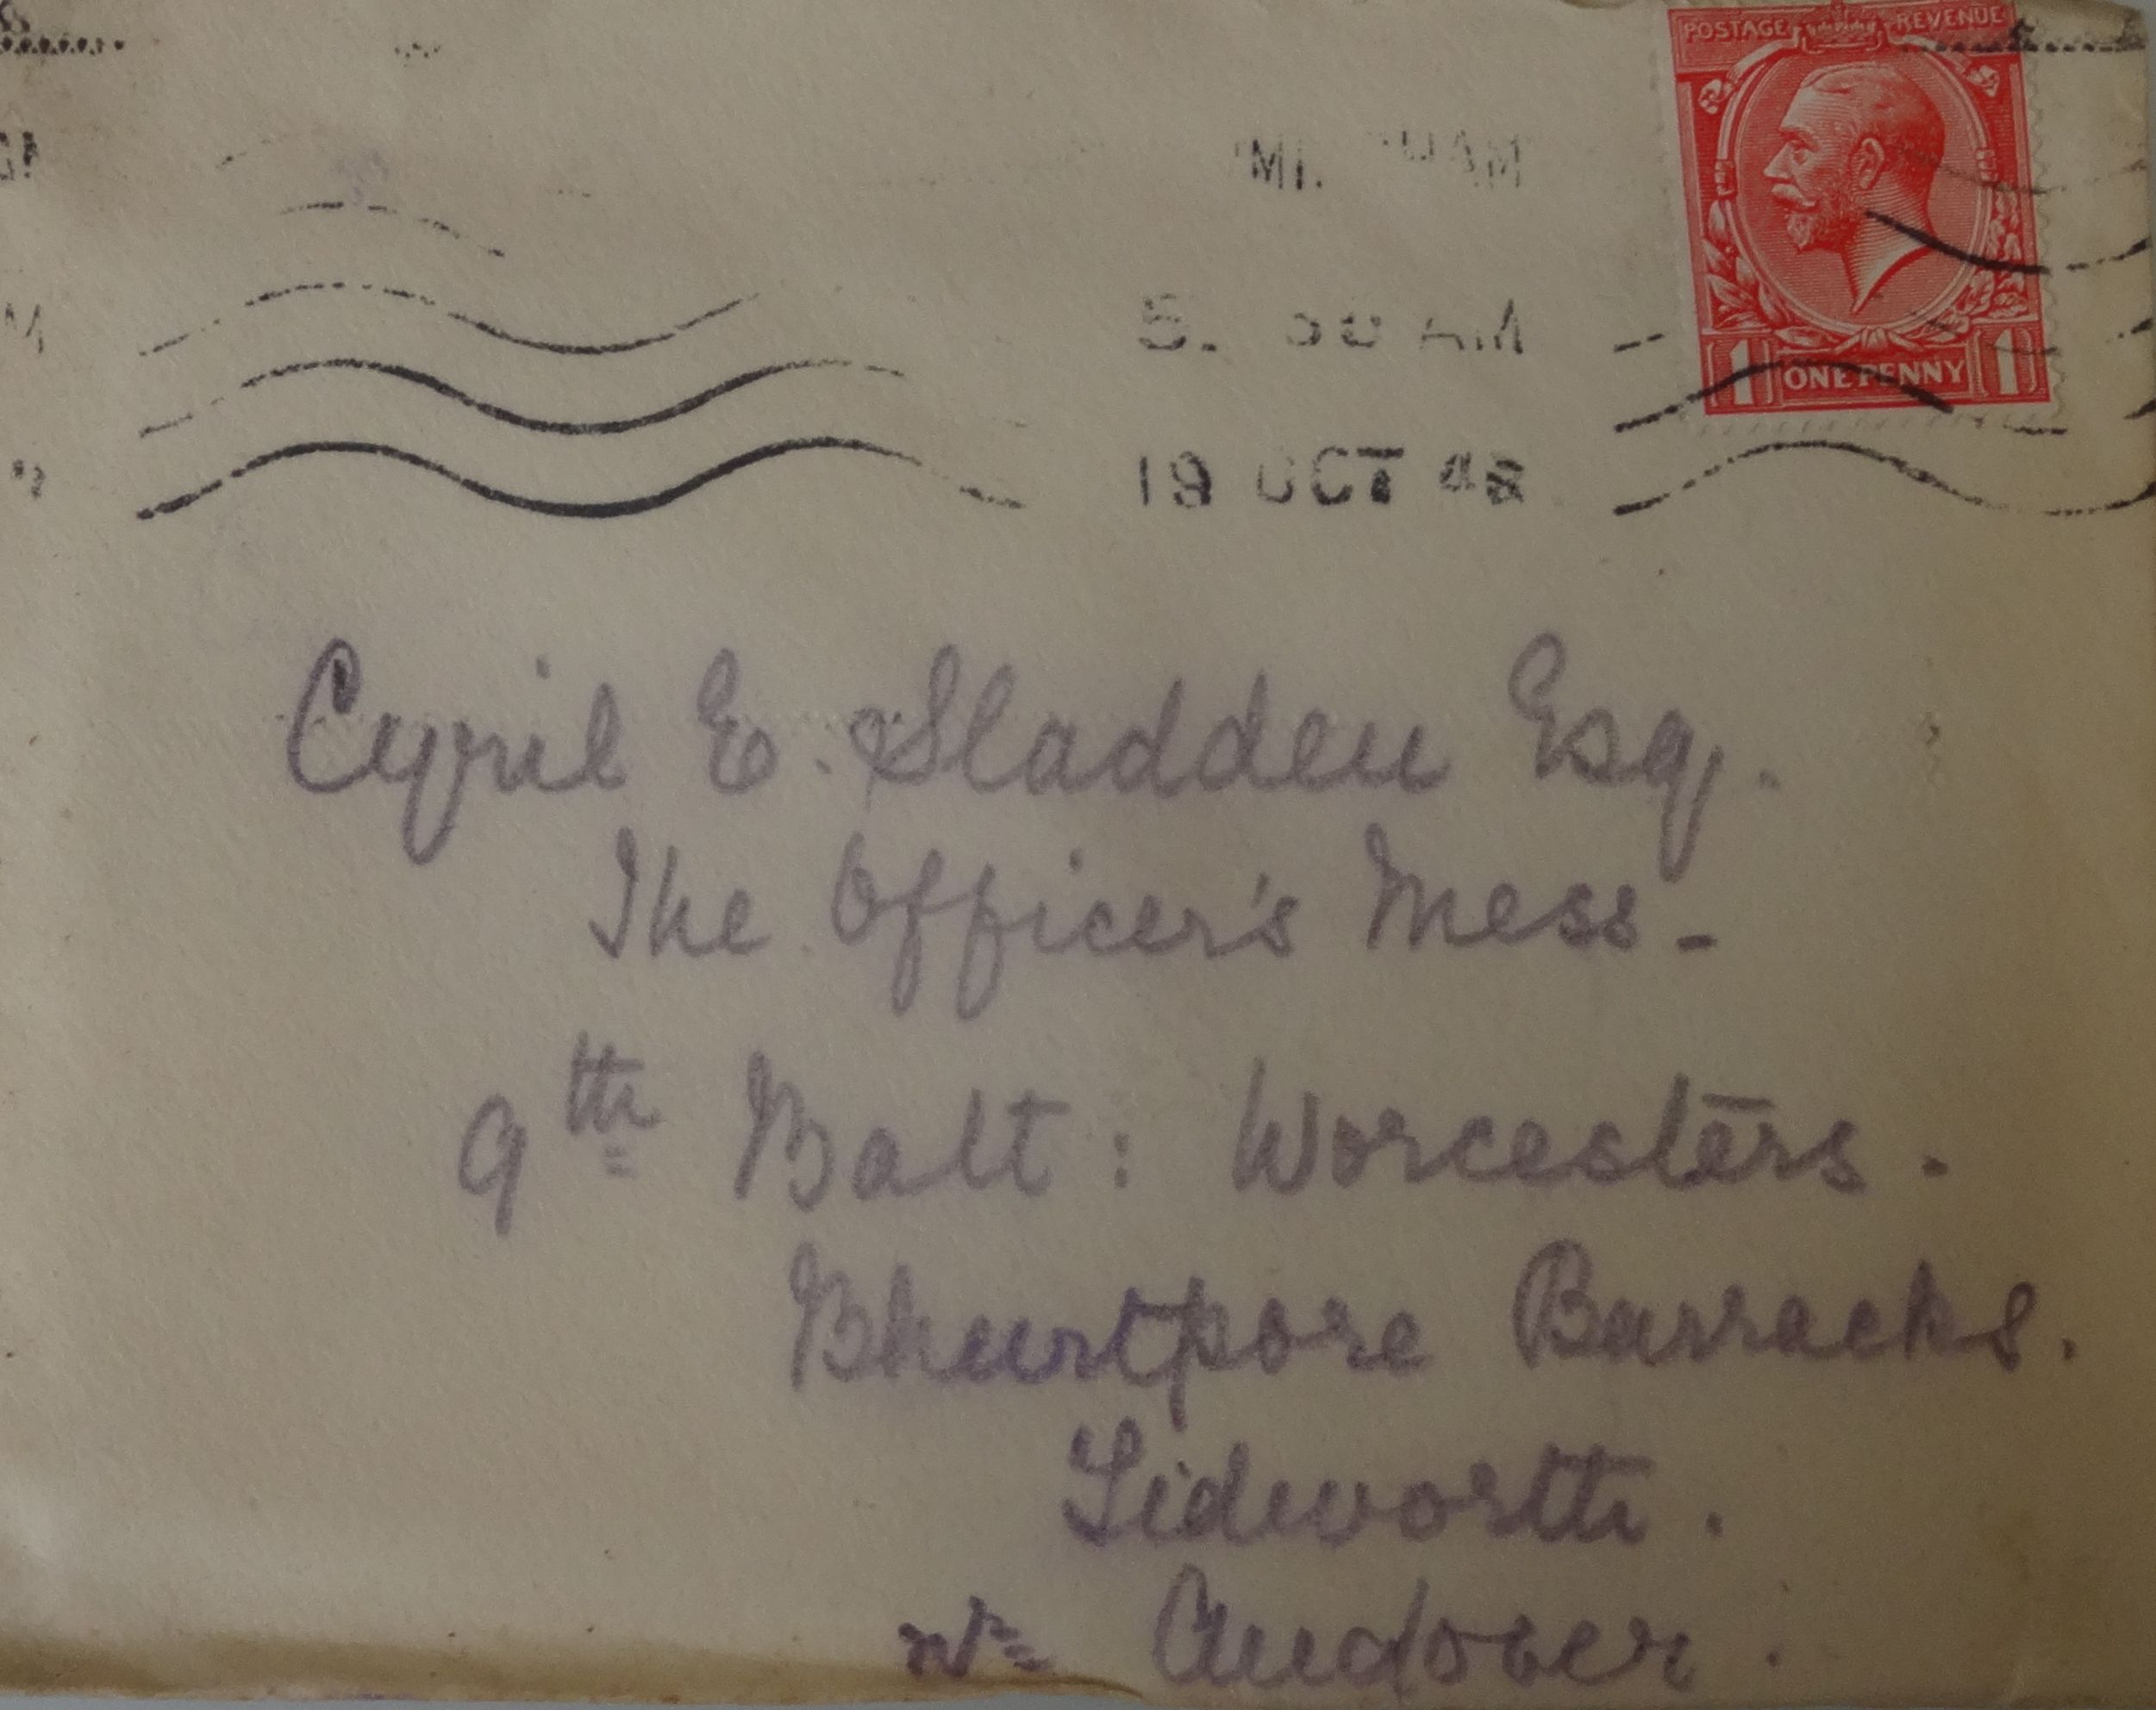 POSTAGE REVENUE
AM
19 OCT
1 ONE PENNY 1
Cyril E. Sladden Esq.
The Officer's Mess -
9th Batt: Worcesters.
Bhurtpore Barracks.
Tidworth.
nr Andover.